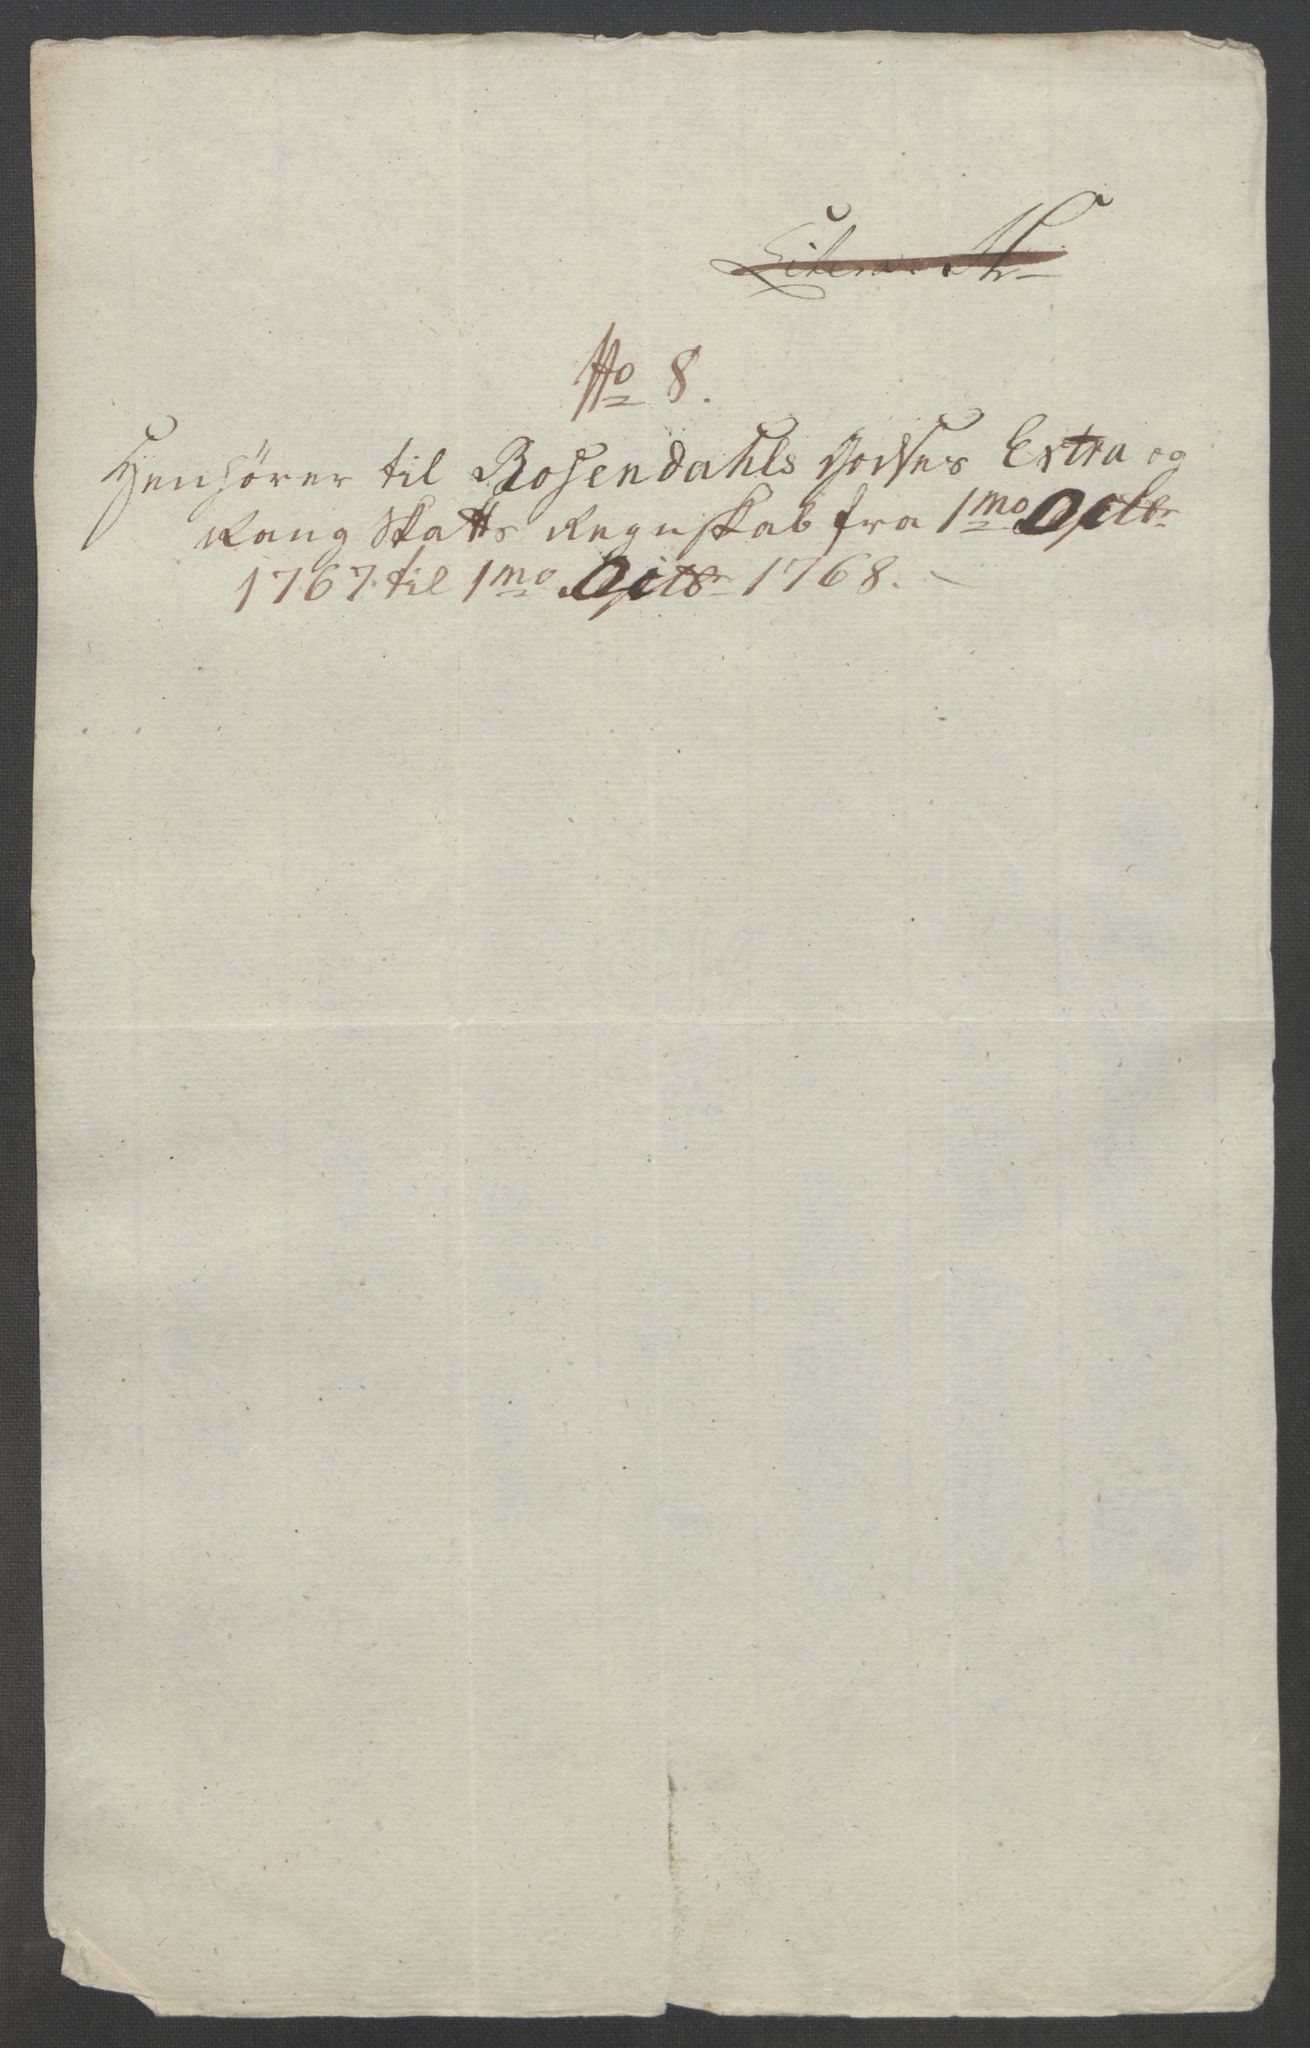 Litera
No 8.
Henhører til Rosendahls Godses Extra og
Rang Skatts Regnskab fra 1mo Octbr
1767 til 1mo Octbr 1768.